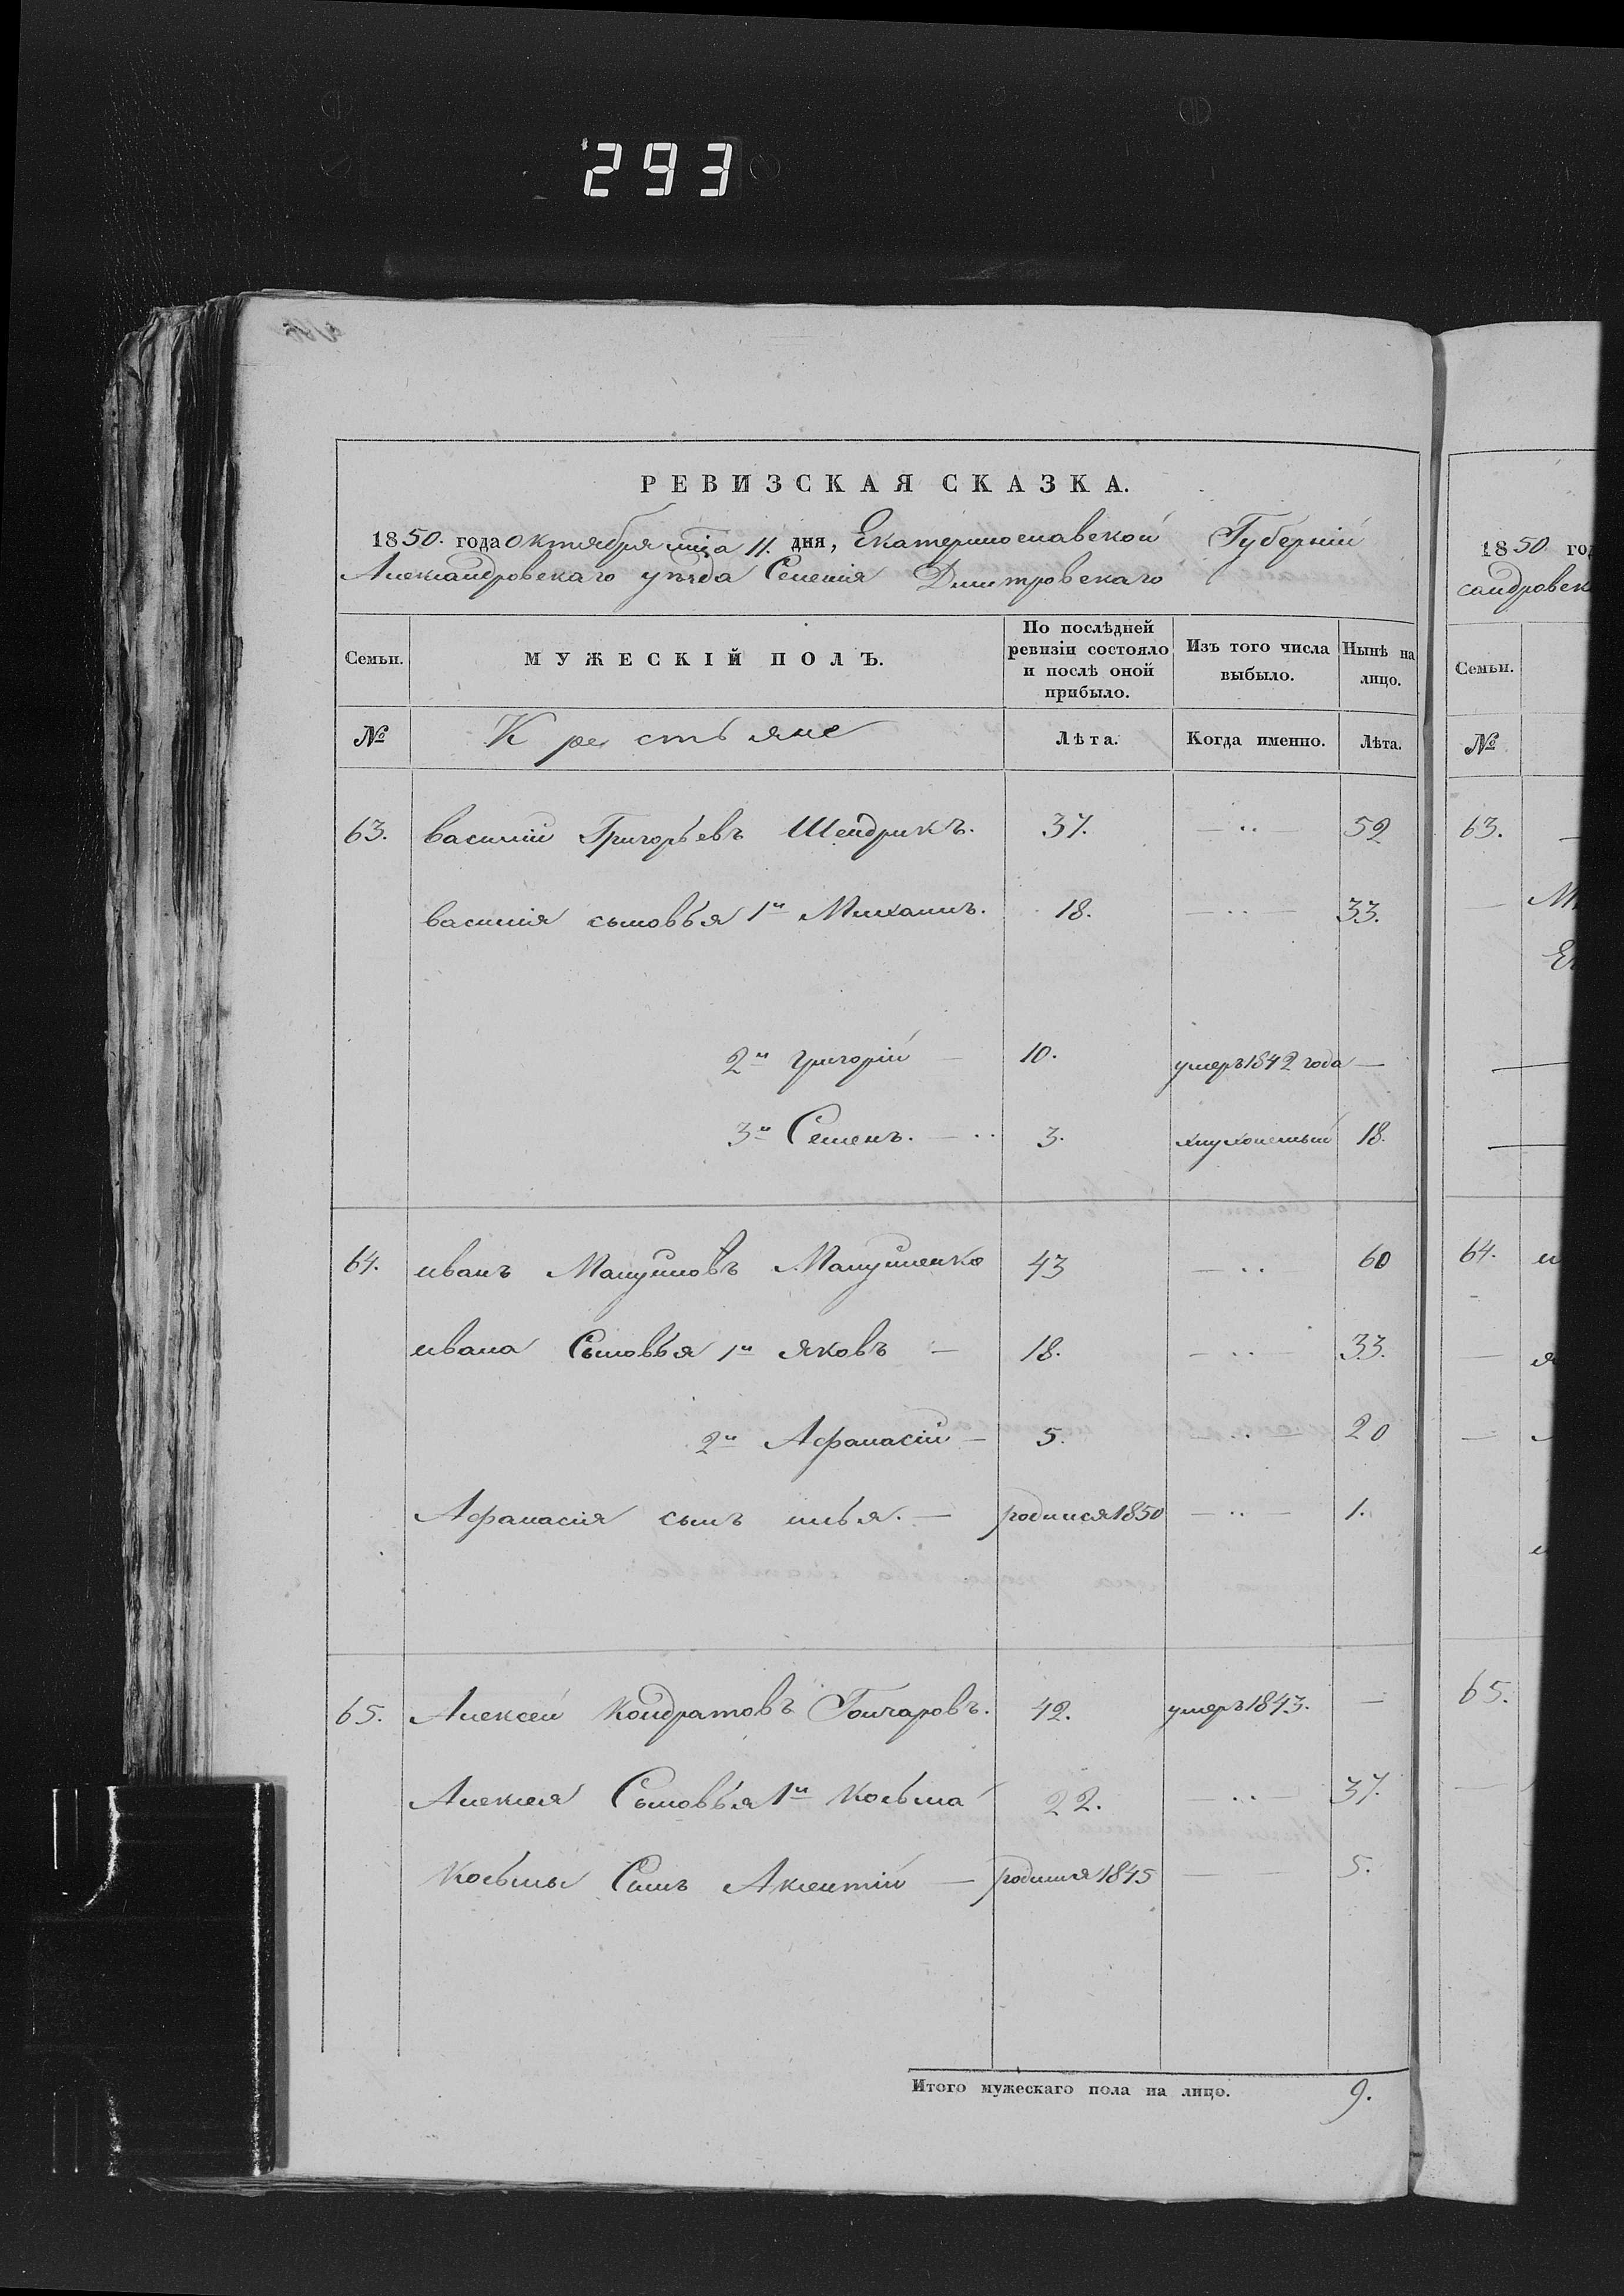 293
РЕВИЗСКАЯ СКАЗКА.
1850. года октября мца 11. дня, Екатеринославской Губерніи
Александровскаго уѣзда Селенія Дмитровскаго
Семьи. МУЖЕСКІЙ ПОЛЪ. По послѣдней ревизіи состояло и послѣ оной прибыло. Изъ того числа выбыло. Нынѣ на лицо.
№ Крестьяне Лѣта. Когда именно. Лѣта.
63. василій Григорьевъ Шендрикъ. 37. — ·· 52
василія сыновья 1й Михаилъ. 18. — ·· — 33.
2й григорій — 10. умеръ 1842 года —
3й Семенъ. — ·· 3. 18.
64. иванъ Мануиловъ Мануиленко 43 — ·· 60
ивана Сыновья 1й яковъ — 18. — ·· — 33.
2й Афанасій — 5. — ·· — 20
Афанасія сынъ илья. — родился 1850 — ·· — 1.
65. Алексей кондратовъ Гончаровъ. 42. умеръ 1843. —
Алексея Сыновья 1й косьма 22. — ·· — 37.
косьмы Сынъ Аксентій — родился 1845 — — 5.
Итого мужескаго пола на лицо. 9.
1850 го
сандровск
Семьи.
№
63.
64.
65.